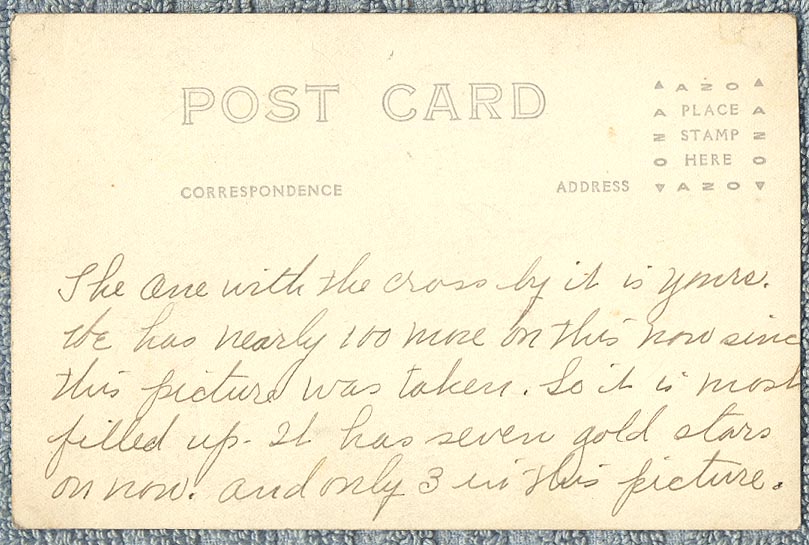 POST CARD
AZO
A PLACE A
N STAMP N
O HERE O
AZO
CORRESPONDENCE
ADDRESS
The One with the cross by it is yours.
We has nearly 100 more on this now sinc
this picture was taken. So it is most
filled up. It has seven gold stars
on now. and only 3 in this picture.